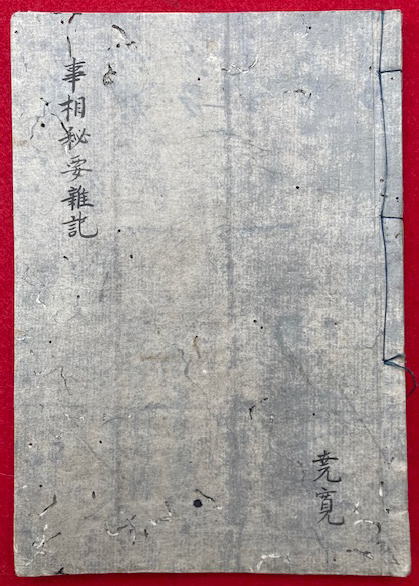 事相秘要雜記
堯寛